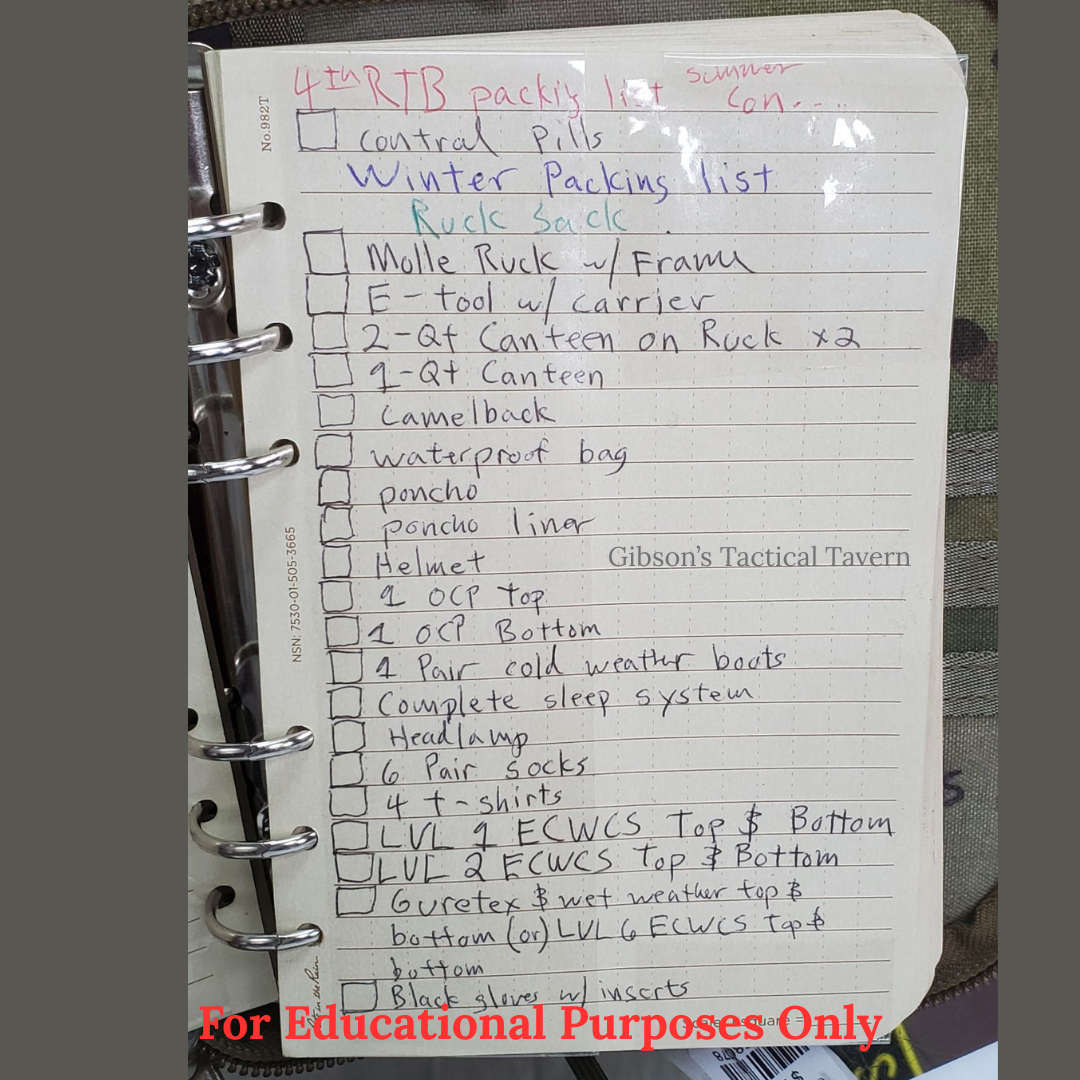 4th RTB packing list summer con.....
No.982T
contral pills
Winter Packing list
Ruck Sack
Molle Ruck w/ Frame
E-tool w/ carrier
2-Qt Canteen on Ruck x2
1-Qt Canteen
camelback
waterproof bag
poncho
poncho liner
Helmet
Gibson's Tactical Tavern
1 OCP top
1 OCP Bottom
1 Pair cold weather boots
Complete sleep system
Headlamp
6 Pair socks
4 t-shirts
LVL 1 ECWCS Top & Bottom
LVL 2 ECWCS Top & Bottom
Goretex & wet weather top &
bottom (or) LVL 6 ECWCS Top &
bottom
Black gloves w/ inserts
NSN: 7530-01-505-3665
in the Rain
square =
For Educational Purposes Only